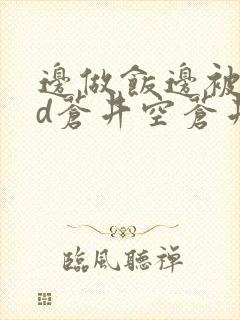 邊做飯邊被
d蒼井空蒼井
臨風聽禪